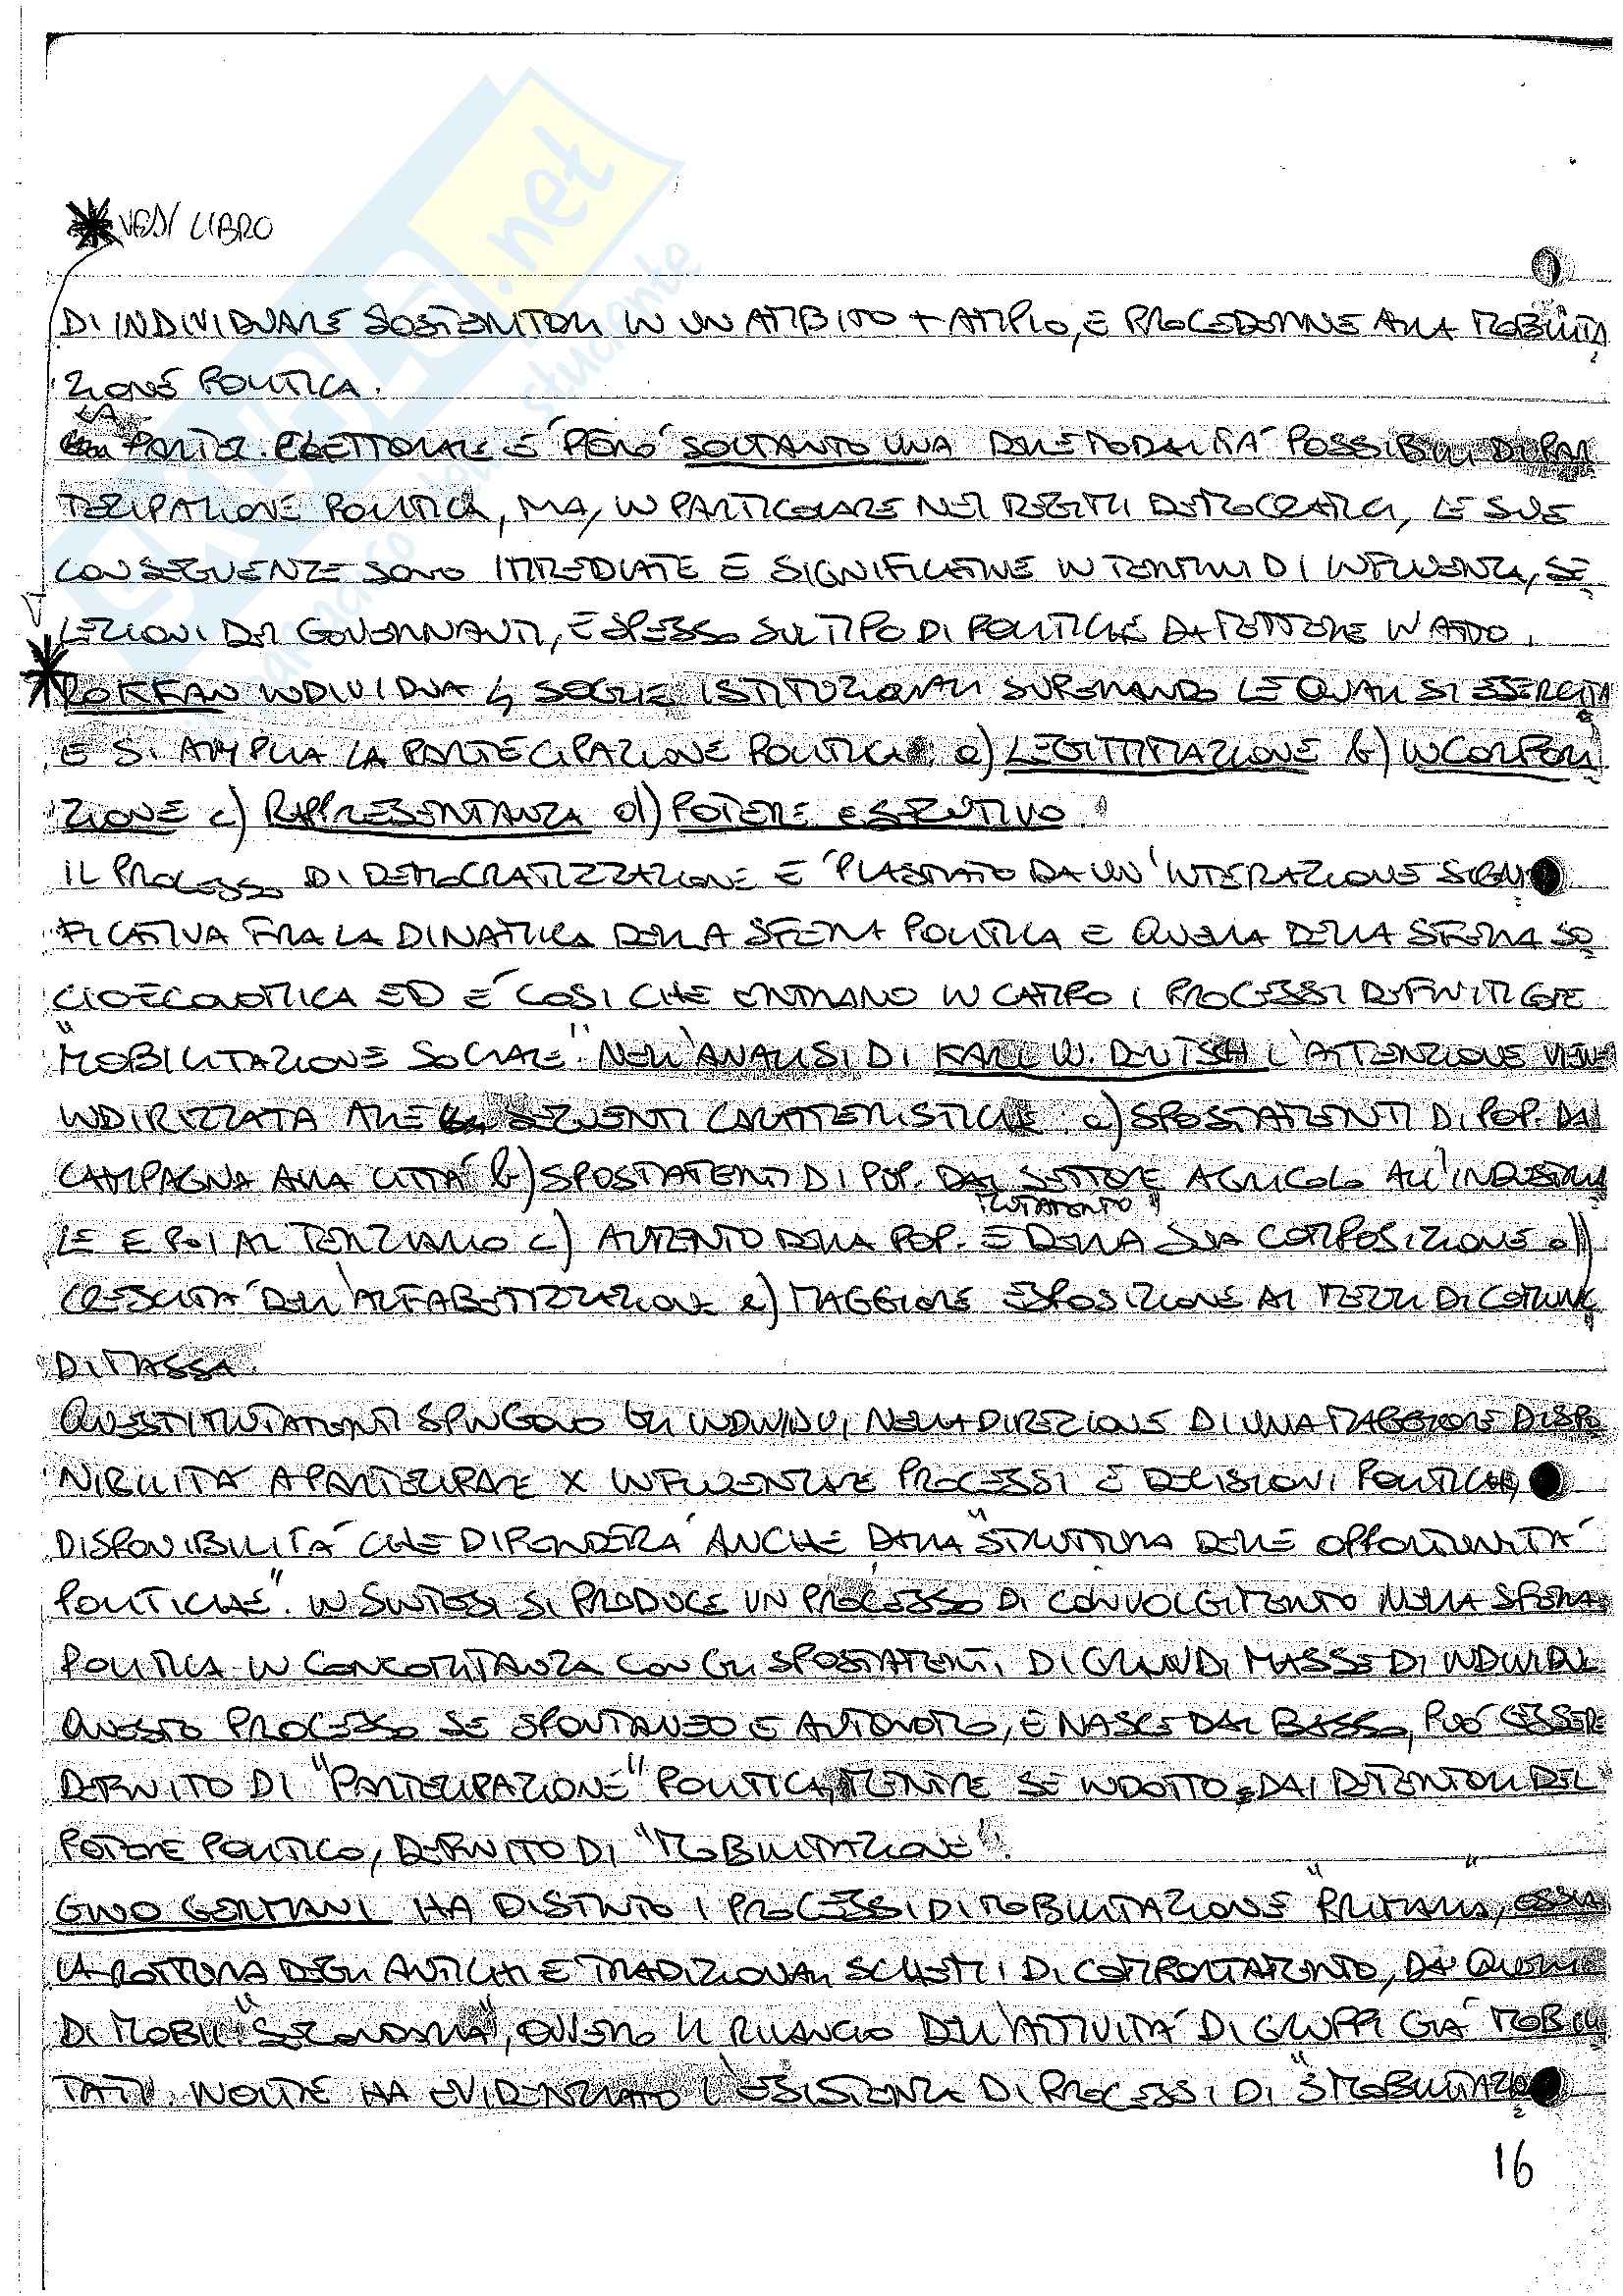 VEDI LIBRO
DI INDIVIDUARE SOSTENITORI IN UN AMBITO + AMPIO, E PROCEDERNE ALLA MOBILITA
ZIONE POLITICA.
LA
PARTEC. ELETTORALE E' PERO' SOLTANTO UNA DELLE MODALITA' POSSIBILI DI PAR
TECIPAZIONE POLITICA, MA, IN PARTICOLARE NEI REGIMI DEMOCRATICI, LE SUE
CONSEGUENZE SONO IMMEDIATE E SIGNIFICATIVE IN TERMINI DI INFLUENZA, SE
LEZIONI DEI GOVERNANTI, E SPESSO SUL TIPO DI POLITICHE DA METTERE IN ATTO.
ROKKAN INDIVIDUA 4 SOGLIE ISTITUZIONALI SUPERANDO LE QUALI SI ESERCITA
E SI AMPLIA LA PARTECIPAZIONE POLITICA: a) LEGITTIMAZIONE b) INCORPORA
ZIONE c) RAPPRESENTANZA d) POTERE ESECUTIVO.
IL PROCESSO DI DEMOCRATIZZAZIONE E' PLASMATO DA UN'INTERAZIONE SIGNI
FICATIVA FRA LA DINAMICA DELLA SFERA POLITICA E QUELLA DELLA SFERA SO
CIOECONOMICA ED E' COSI CHE ENTRANO IN CAMPO I PROCESSI DEFINITI
"MOBILITAZIONE SOCIALE". NELL'ANALISI DI KARL W. DEUTSCH L'ATTENZIONE VIENE
INDIRIZZATA ALLE SEGUENTI CARATTERISTICHE: a) SPOSTAMENTI DI POP. DAL
CAMPAGNA ALLA CITTA' b) SPOSTAMENTI DI POP. DAL SETTORE AGRICOLO ALL'INDUSTRIA
MUTAMENTO
LE E POI AL TERZIARIO c) AUMENTO DELLA POP. E DELLA SUA COMPOSIZIONE d)
CRESCITA DELL'ALFABETIZZAZIONE e) MAGGIORE ESPOSIZIONE AI MEZZI DI COMUNIC
DI MASSA.
QUESTI MUTAMENTI SPINGONO GLI INDIVIDUI NELLA DIREZIONE DI UNA MAGGIORE DISPO
NIBILITA' A PARTECIPARE X INFLUENZARE PROCESSI E DECISIONI POLITICHE,
DISPONIBILITA' CHE DIPENDERA' ANCHE DALLA "STRUTTURA DELLE OPPORTUNITA'
POLITICHE". IN SINTESI SI PRODUCE UN PROCESSO DI COINVOLGIMENTO NELLA SFERA
POLITICA IN CONCOMITANZA CON GLI SPOSTAMENTI DI GRANDI MASSE DI INDIVIDUI.
QUESTO PROCESSO SE SPONTANEO E AUTONOMO, E NASCE DAL BASSO, PUO' ESSERE
DEFINITO DI "PARTECIPAZIONE" POLITICA, MENTRE SE INDOTTO DAI DETENTORI DEL
POTERE POLITICO, DEFINITO DI "MOBILITAZIONE".
GINO GERMANI HA DISTINTO I PROCESSI DI MOBILITAZIONE "PRIMARIA", OSSIA
LA ROTTURA DEGLI ANTICHI E TRADIZIONALI SCHEMI DI COMPORTAMENTO, DA QUELLI
DI MOBIL. "SECONDARIA", OVVERO IL RILANCIO DELL'ATTIVITA' DI GRUPPI GIA' MOBILI
TATI. NOLTE HA EVIDENZIATO L'ESISTENZA DI PROCESSI DI "SMOBILITAZIO
16